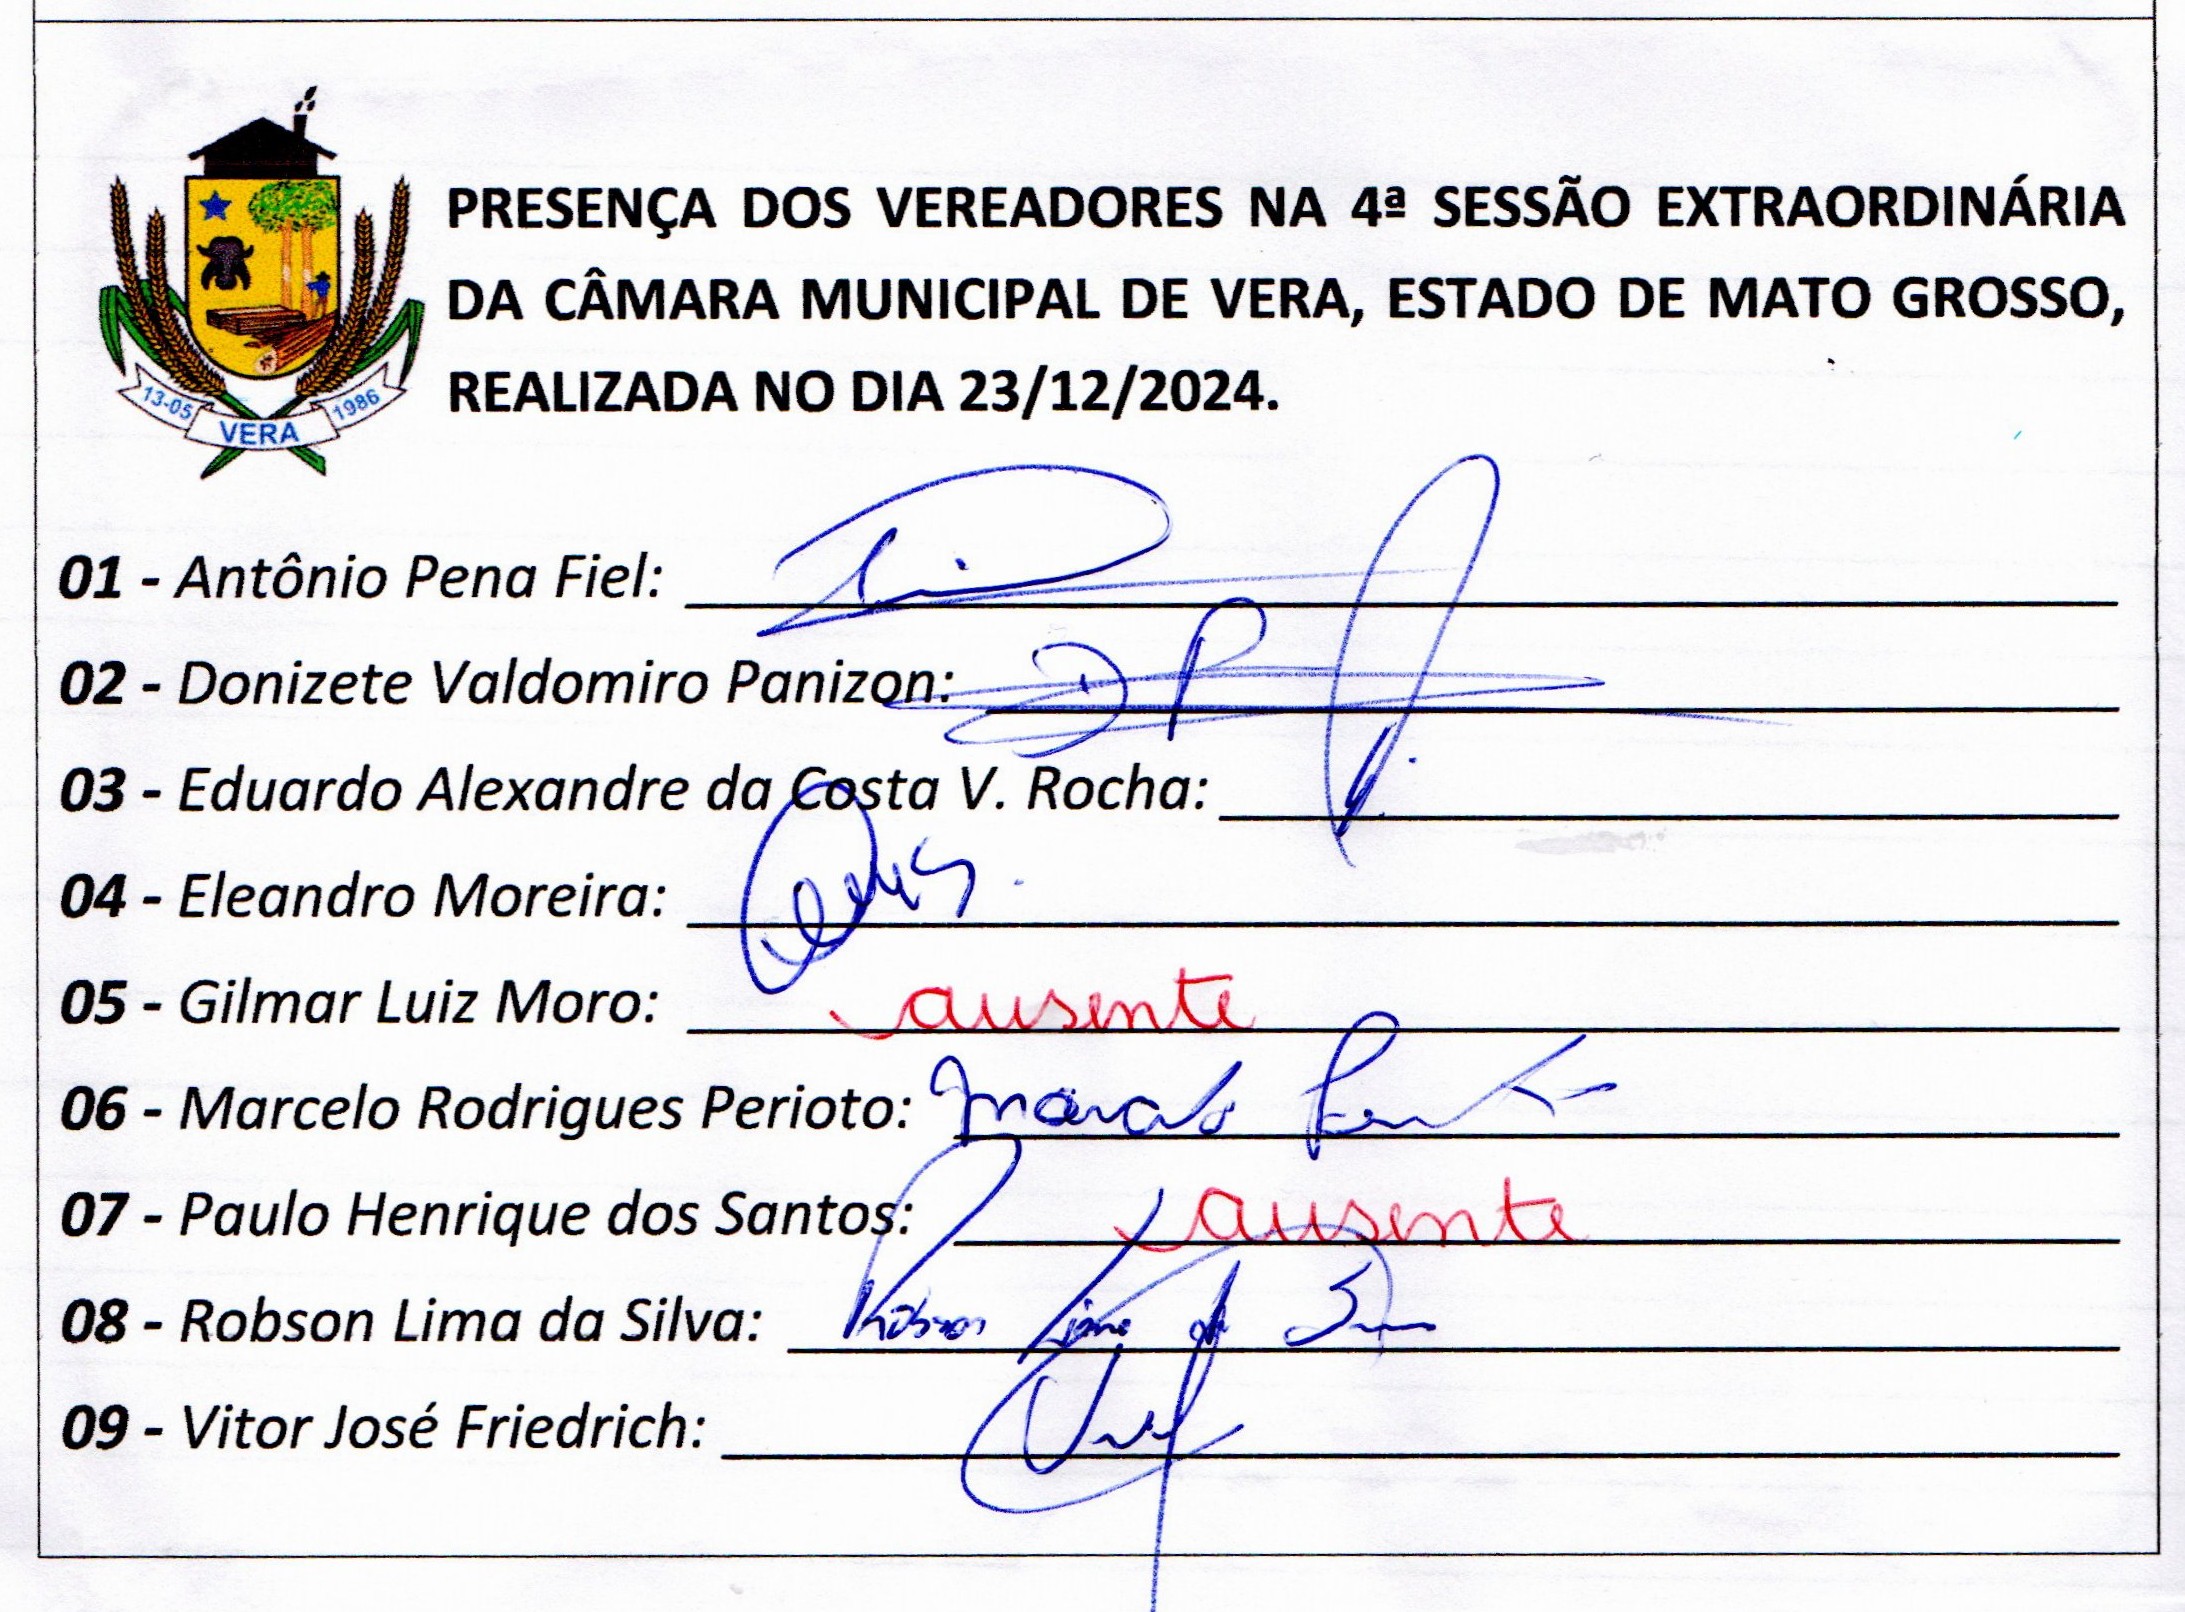 PRESENÇA DOS VEREADORES NA 4ª SESSÃO EXTRAORDINÁRIA
DA CÂMARA MUNICIPAL DE VERA, ESTADO DE MATO GROSSO,
REALIZADA NO DIA 23/12/2024.
13-05 VERA 1986
01 - Antônio Pena Fiel:
02 - Donizete Valdomiro Panizon:
03 - Eduardo Alexandre da Costa V. Rocha:
04 - Eleandro Moreira:
05 - Gilmar Luiz Moro: ausente
06 - Marcelo Rodrigues Perioto:
07 - Paulo Henrique dos Santos: ausente
08 - Robson Lima da Silva: Robson Lima da
09 - Vitor José Friedrich: